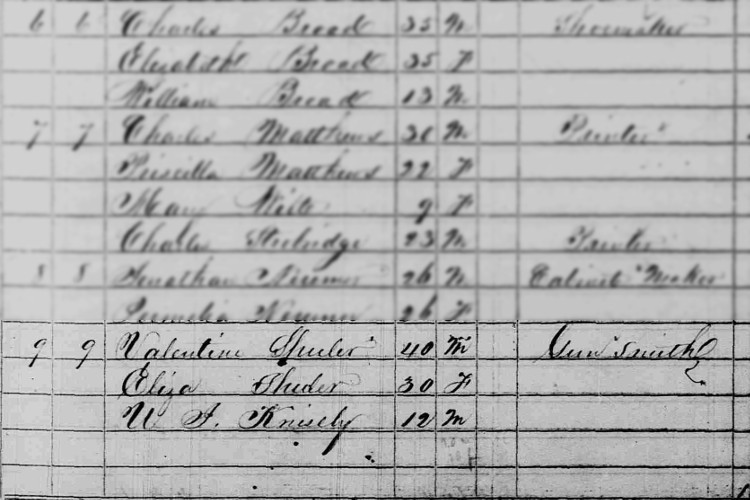 6 6 Charles Broad 35 M Shoemaker
Elizabeth Broad 35 F
William Broad 13 M
7 7 Charles Matthews 30 M Painter
Priscilla Matthews 22 F
9 F
Charles 23 M
8 8 Jonathan 26 M Cabinet Maker
26 F
9 9 Valentine Shuler 40 M Gun Smith
Eliza Shuler 30 F
W J. Knisely 12 M